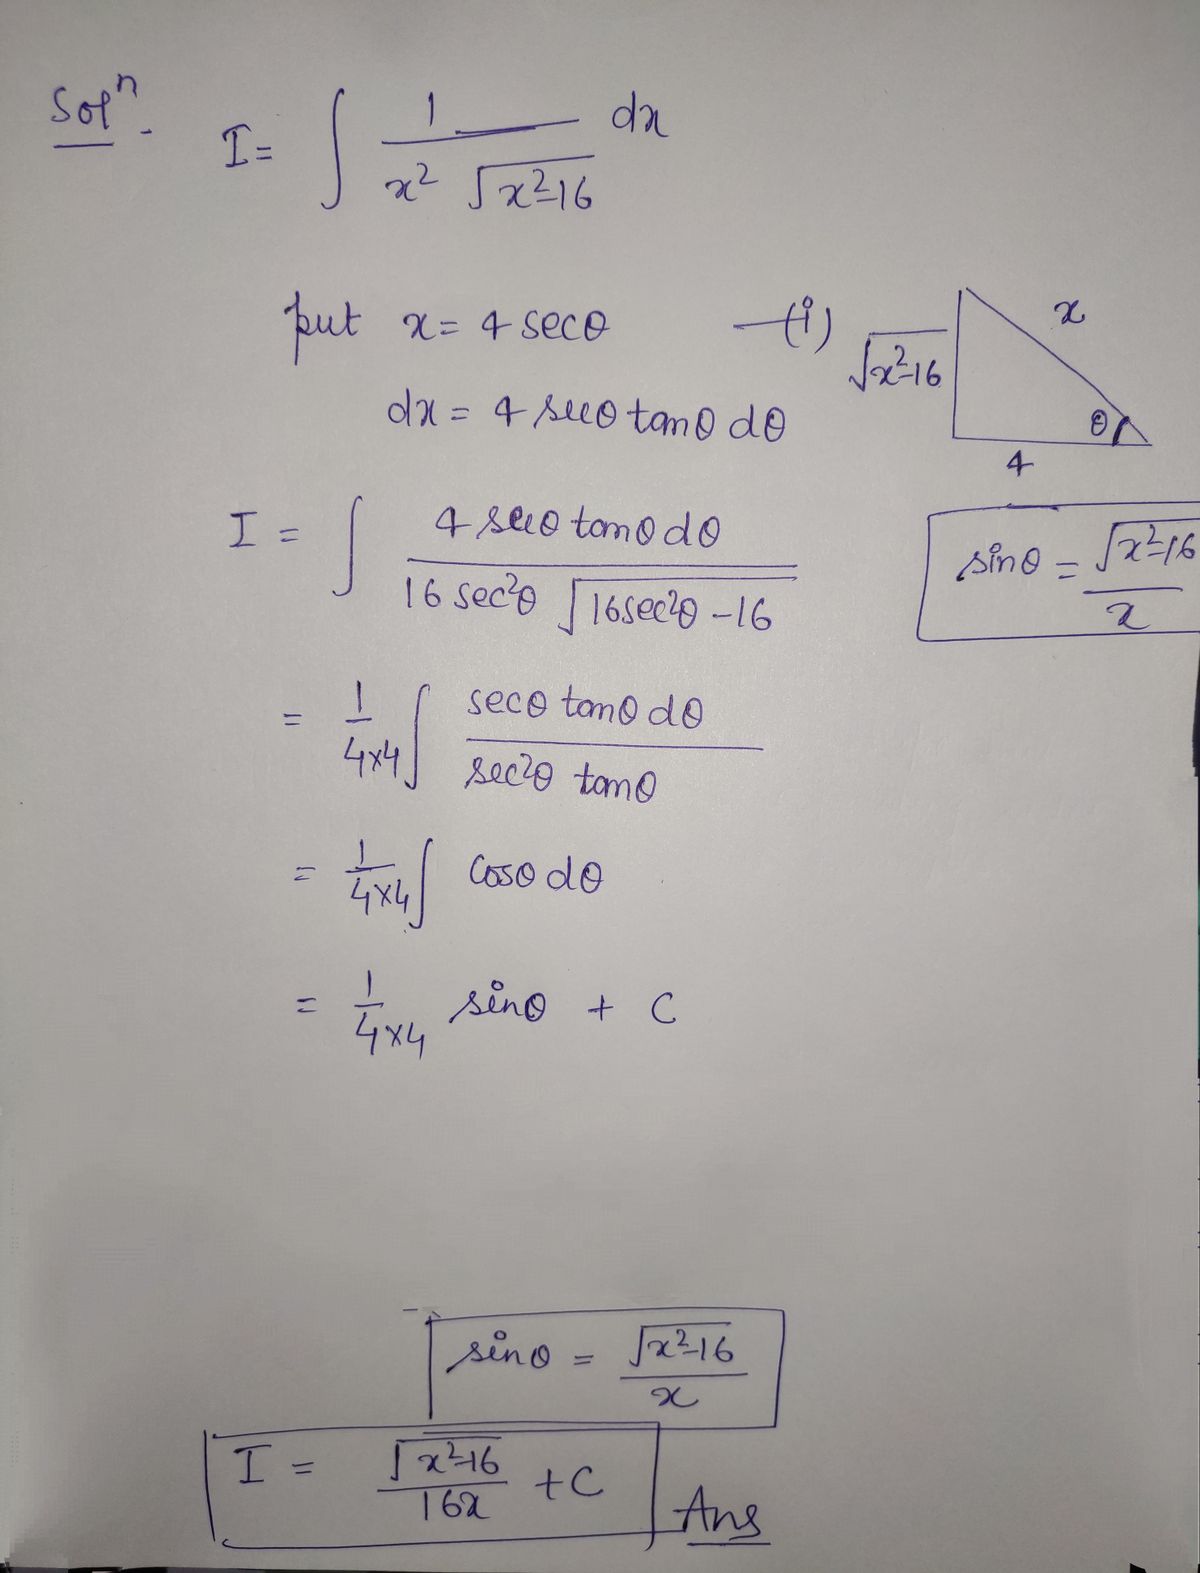 Solⁿ.
I = ∫ 1/(x² √(x²-16)) dx
put x = 4 secθ —(i)
dx = 4 secθ tanθ dθ
√(x²-16)
x
θ
4
I = ∫ (4 secθ tanθ dθ)/(16 sec²θ √(16sec²θ -16))
sinθ = √(x²-16)/x
= 1/(4×4) ∫ (secθ tanθ dθ)/(sec²θ tanθ)
= 1/(4×4) ∫ cosθ dθ
= 1/(4×4) sinθ + C
sinθ = √(x²-16)/x
I = √(x²-16)/(16x) + C
Ans